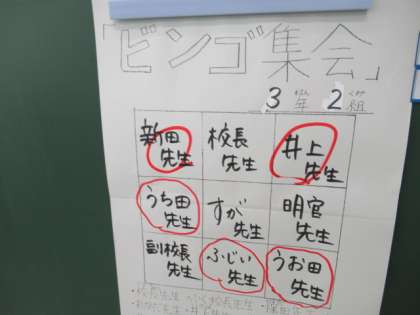 「ビンゴ集会」
3年 2組
新田先生 校長先生 井上先生
うち田先生 すが先生 明官先生
副校長先生 ふじい先生 うお田先生